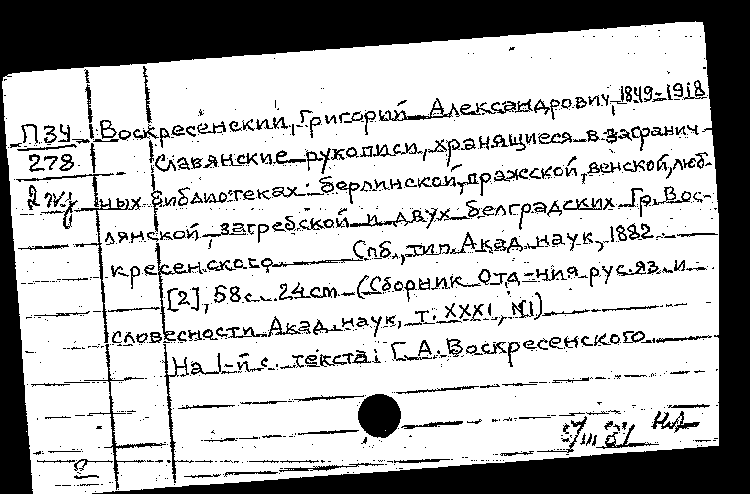 П34 Воскресенский, Григорий Александрович, 1849-1918
278 Славянские рукописи, хранящиеся в загранич-
2 экз ных библиотеках: берлинской, пражской, венской, люб-
лянской, загребской и двух белградских Гр. Вос-
кресенского Спб., тип. Акад. наук, 1882.
[2], 58 с. 24 cm (Сборник Отд-ния рус. яз. и
словесности Акад. наук, т. XXXI, №1)
На 1-й с. текста: Г. А. Воскресенского